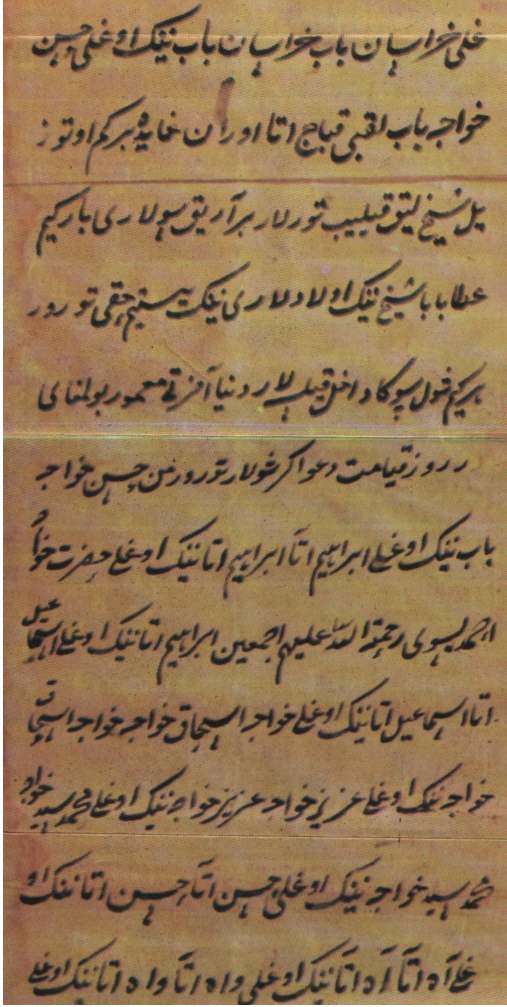 غلی خراسان باب خراسان باب نینک اوغلی حسن
خواجه باب لقبی قباج اتا اوران غایده هر کم اوتوز
ییل شیخ لیق قیلیب تورلار بر آریق سولاری بار کیم
عطا بابا شیخ نینک اولادلاری نینک حقی تورور
هر کیم قول سوکا داخل قیلسه لار دنیا آخرتی معمور بولمای
روز قیامت دعواکر غولار تورورمن حسن خواجه
باب نینک اوغلی ابراهیم اتا ابراهیم اتا نینک اوغلی حضرت خواجه
احمد یسوی رحمة الله علیهم اجمعین ابراهیم اتا نینک اوغلی اسماعیل
اتا اسماعیل اتا نینک اوغلی خواجه اسحاق خواجه خواجه اسحاق
خواجه نینک اوغلی عزیز خواجه عزیز خواجه نینک اوغلی محمد سید خواجه
محمد سید خواجه نینک اوغلی حسن اتا حسن اتا نینک او
غلی آه اتا آه اتا نینک اوغلی واه اتا واه اتا نینک اوغلی